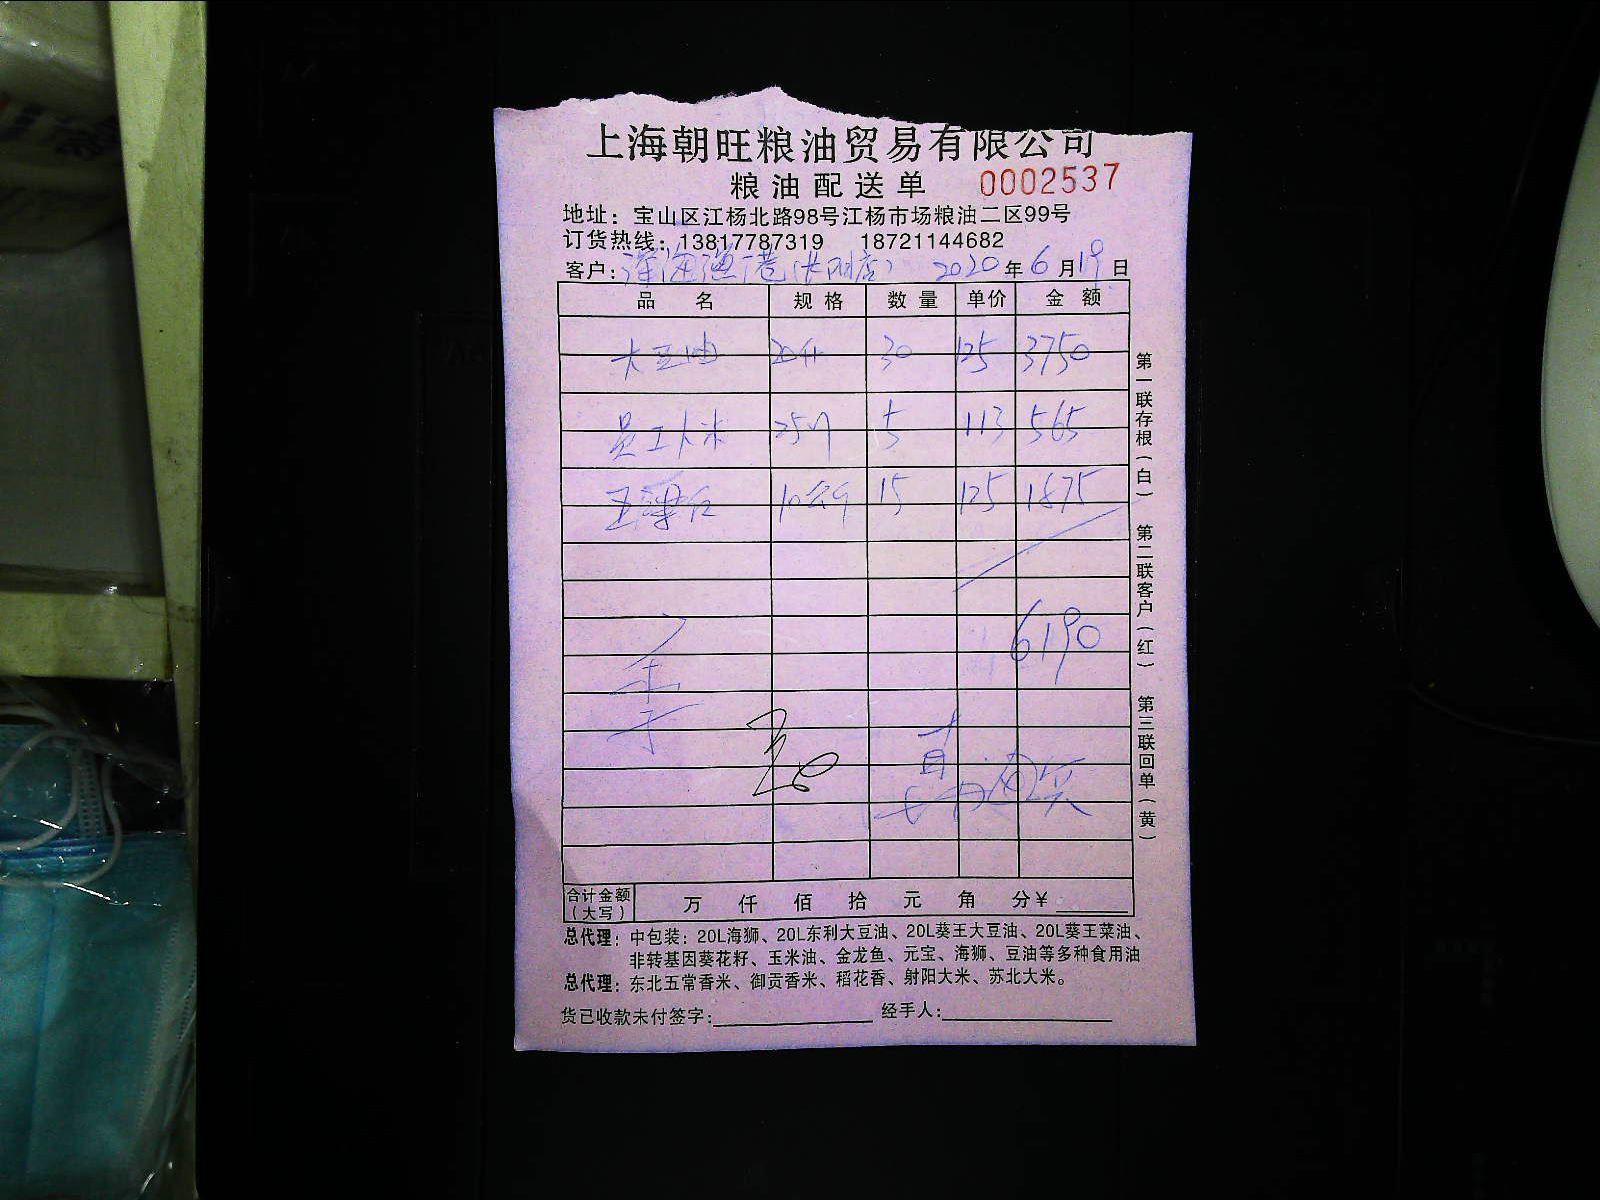 上海朝旺粮油贸易有限公司
粮油配送单 0002537
地址：宝山区江杨北路98号江杨市场粮油二区99号
订货热线：13817787319 18721144682
客户：深海渔港（长阳店） 2020年6月19日
品名 规格 数量 单价 金额
大豆油 20升 30 125 3750
员工大米 25 5 113 565
10公斤 15 125 1875
6190
合计金额（大写） 万 仟 佰 拾 元 角 分¥
总代理：中包装：20L海狮、20L东利大豆油、20L葵王大豆油、20L葵王菜油、
非转基因葵花籽、玉米油、金龙鱼、元宝、海狮、豆油等多种食用油
总代理：东北五常香米、御贡香米、稻花香、射阳大米、苏北大米。
货已收款未付签字： 经手人：
第一联存根（白） 第二联客户（红） 第三联回单（黄）